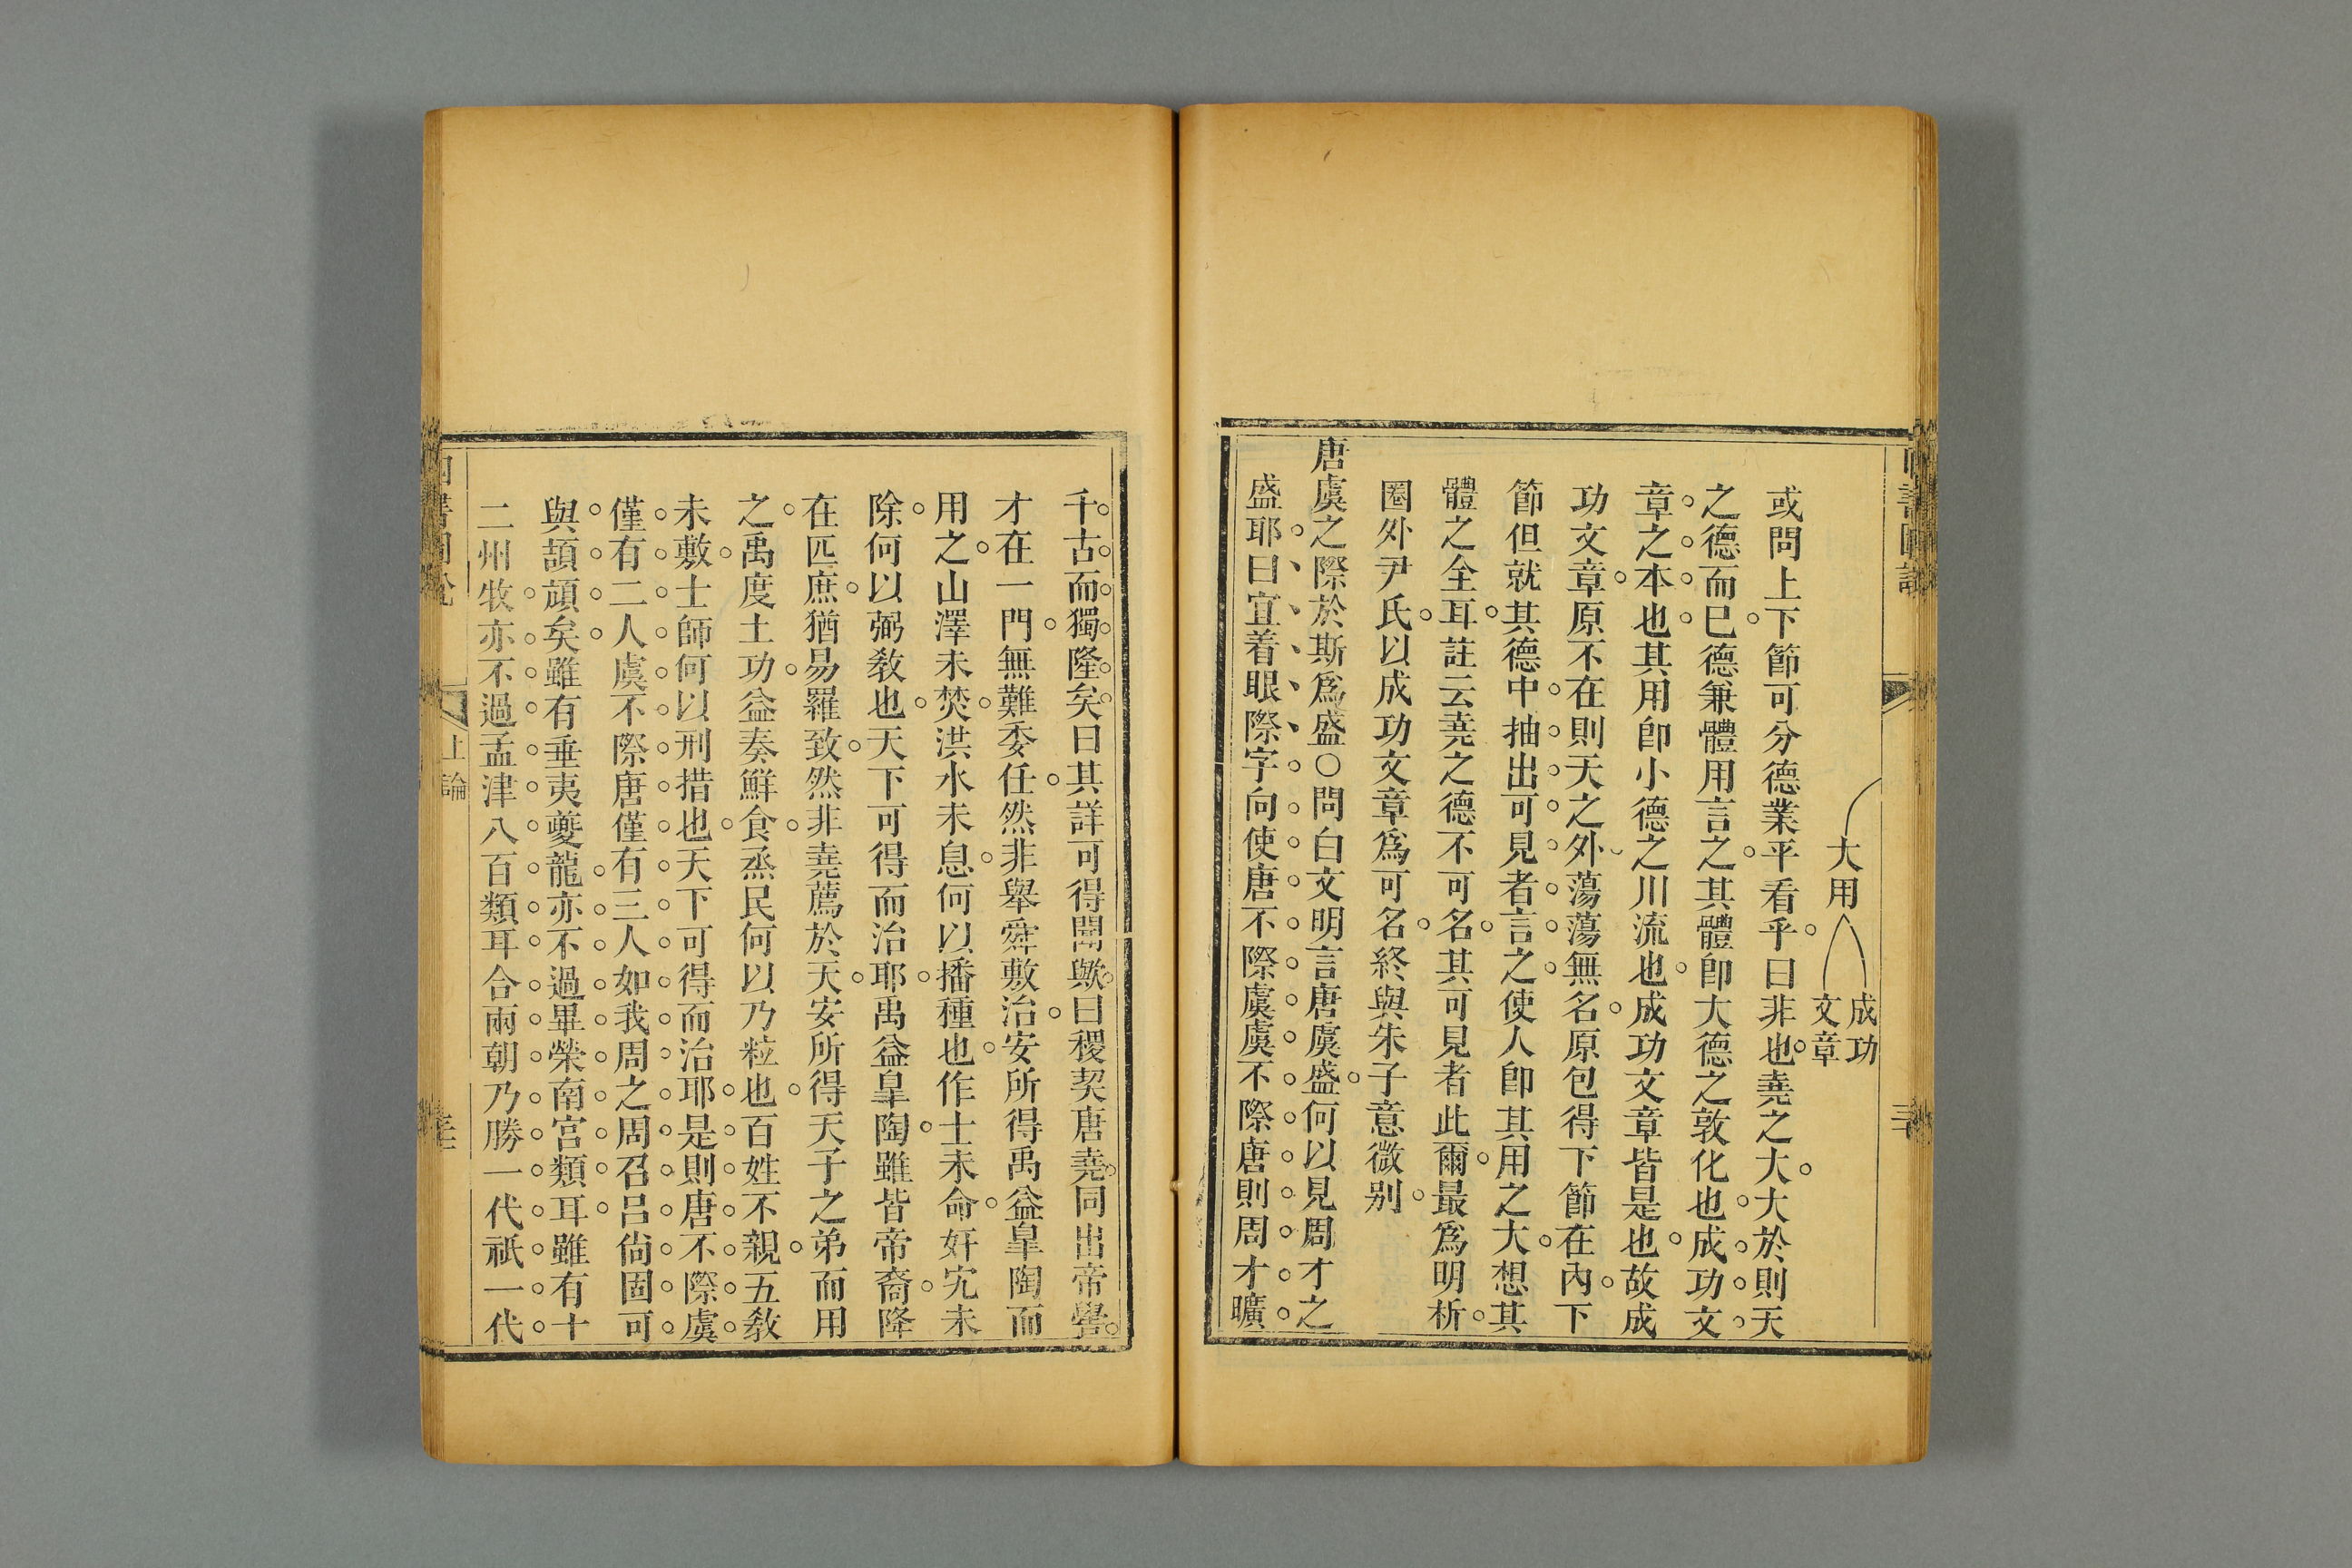 大用
成功
文章
或問上下節可分德業平看乎曰非也堯之大大於則天
之德而已德兼體用言之其體卽大德之敦化也成功文
章之本也其用卽小德之川流也成功文章皆是也故成
功文章原不在則天之外蕩蕩無名原包得下節在內下
節但就其德中抽出可見者言之使人卽其用之大想其
體之全耳註云堯之德不可名其可見者此爾最爲明析
圈外尹氏以成功文章爲可名終與朱子意微别
唐虞之際於斯爲盛○問白文明言唐虞盛何以見周才之
盛耶曰宜着眼際字向使唐不際虞虞不際唐則周才曠
千古而獨隆矣曰其詳可得聞歟曰稷契唐堯同出帝嚳
才在一門無難委任然非舉舜敷治安所得禹益皐陶而
用之山澤未焚洪水未息何以播種也作士未命奸宄未
除何以弼敎也天下可得而治耶禹益皐陶雖皆帝裔降
在匹庶猶易羅致然非堯薦於天安所得天子之弟而用
之禹度土功益奏鮮食烝民何以乃粒也百姓不親五敎
未敷士師何以刑措也天下可得而治耶是則唐不際虞
僅有二人虞不際唐僅有三人如我周之周召呂尙固可
與頡頏矣雖有垂夷夔龍亦不過畢榮南宮類耳雖有十
二州牧亦不過孟津八百類耳合兩朝乃勝一代祇一代
上論